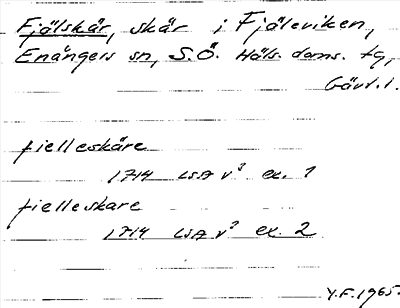 Fjälskär, skär i Fjäleviken,
Enångers sn, S.Ö. Häls. doms. tg,
Gävl. l.
fielleskäre
1714 LSA V³ ex. 1
fielleskare
1714 LSA V³ ex. 2
Y.F. 1965.